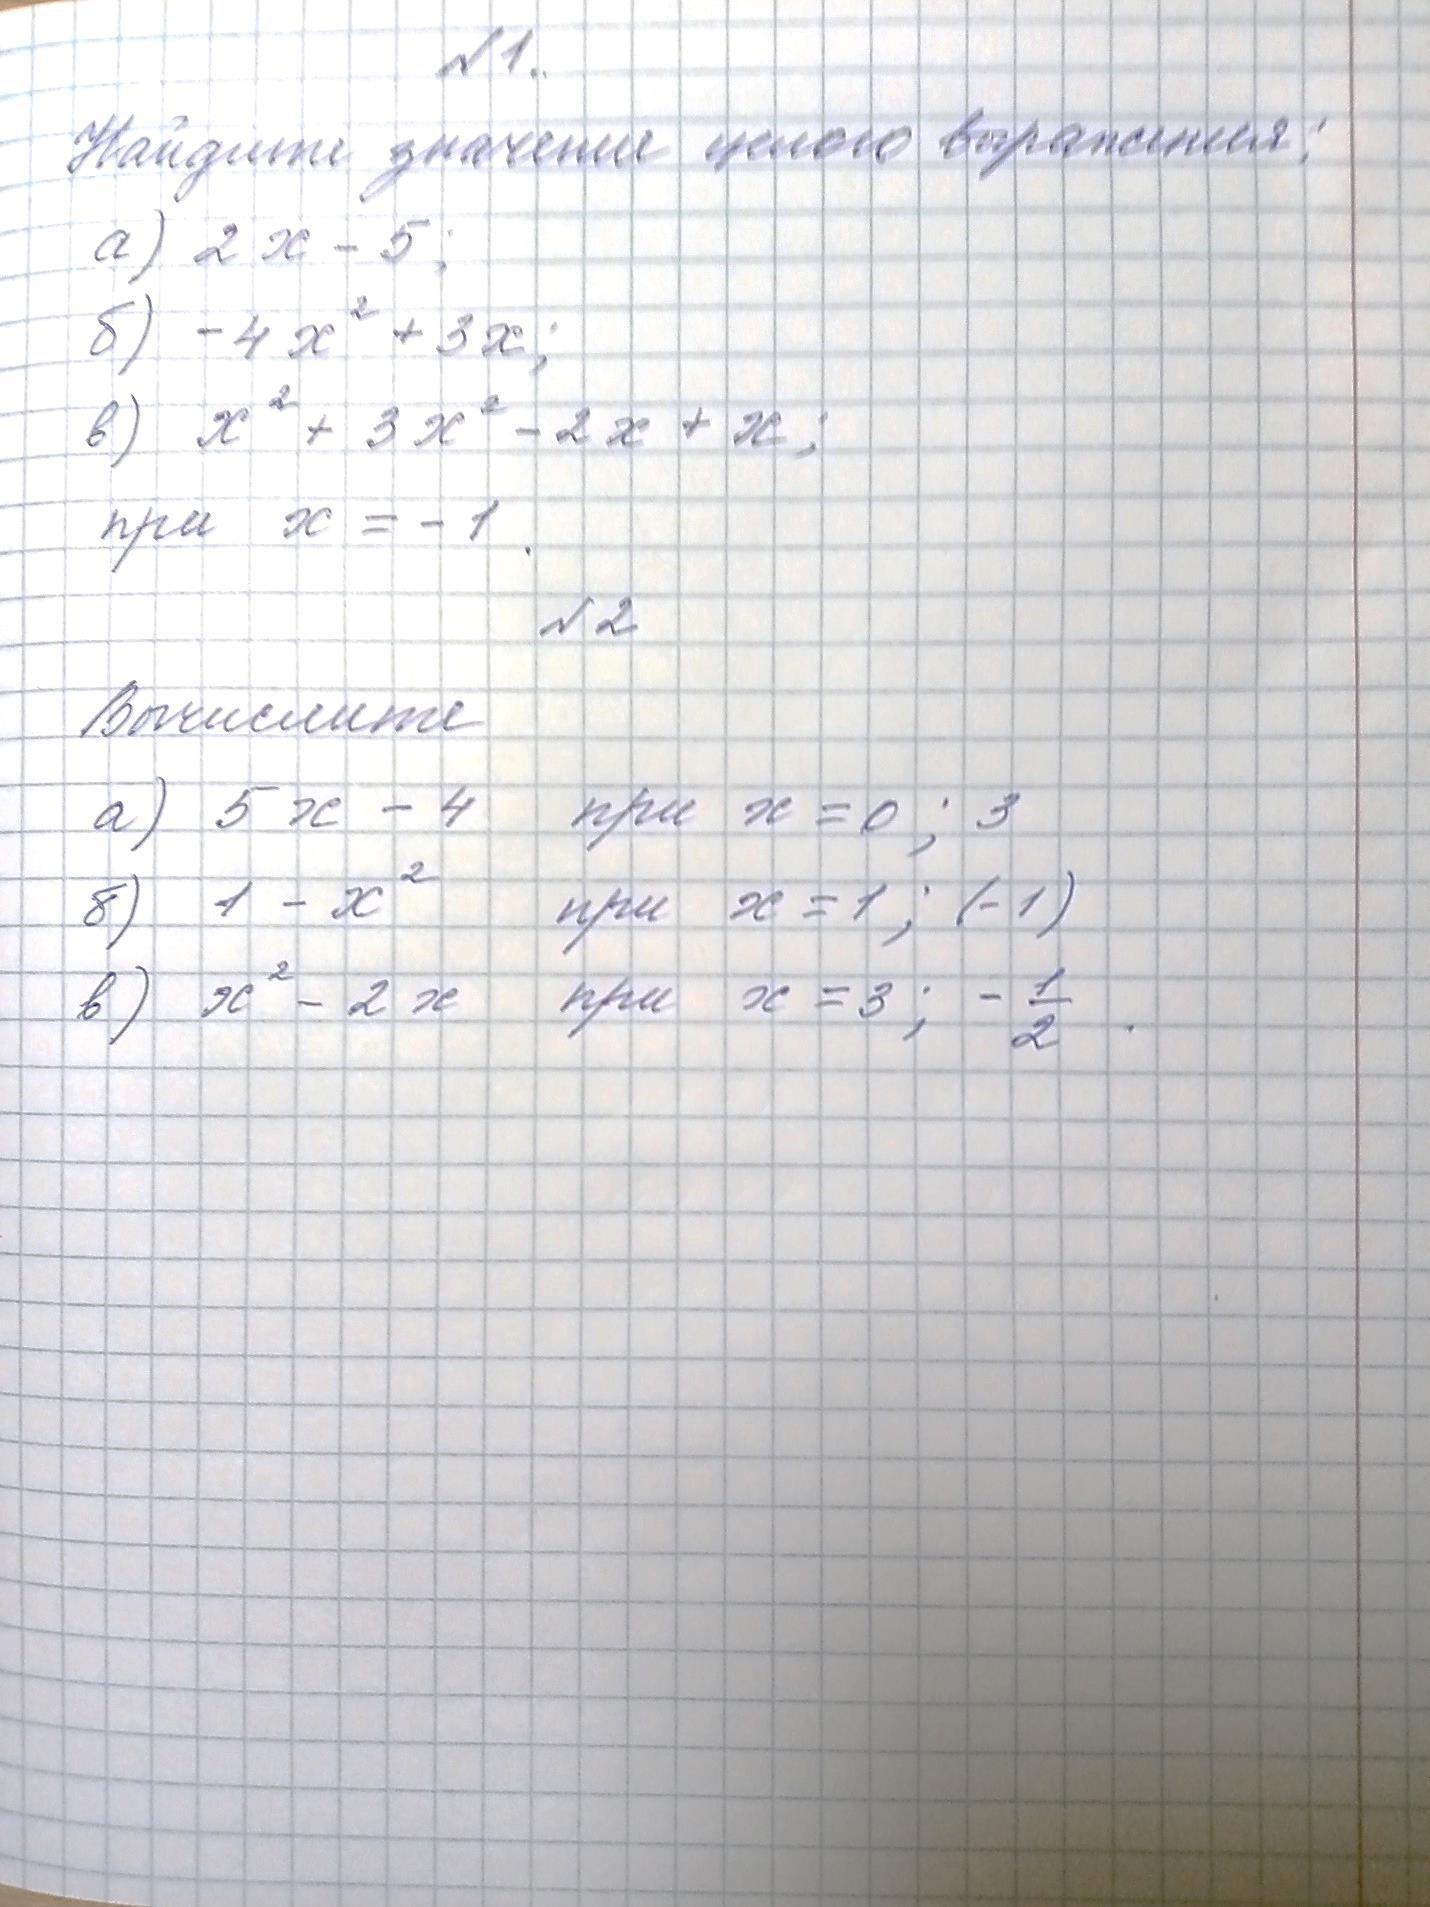 №1.
Найдите значение целого выражения:
а) 2x - 5;
б) -4x² + 3x;
в) x² + 3x² - 2x + x;
при x = -1.
№2
Вычислите
а) 5x - 4 при x = 0; 3
б) 1 - x² при x = 1; (-1)
в) x² - 2x при x = 3; -1/2.